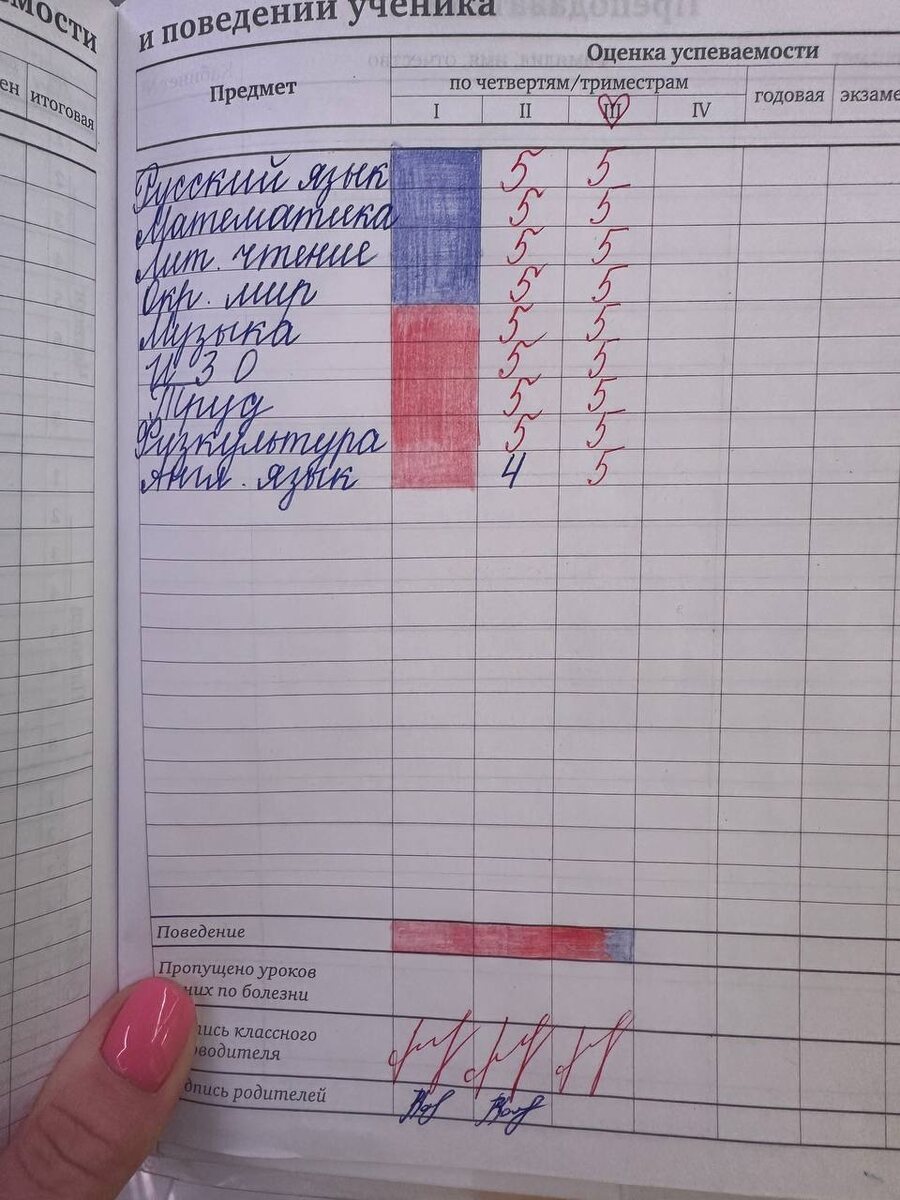 и поведении ученика
ен итоговая
Предмет
Оценка успеваемости
по четвертям/триместрам
годовая
экзаме
I II III IV
Русский язык 5 5
Математика 5 5
Лит. чтение 5 5
Окр. мир 5 5
Музыка 5 5
ИЗО 5 5
Труд 5 5
Физкультура 5 5
Англ. язык 4 5
Поведение
Пропущено уроков
них по болезни
пись классного
водителя
дпись родителей